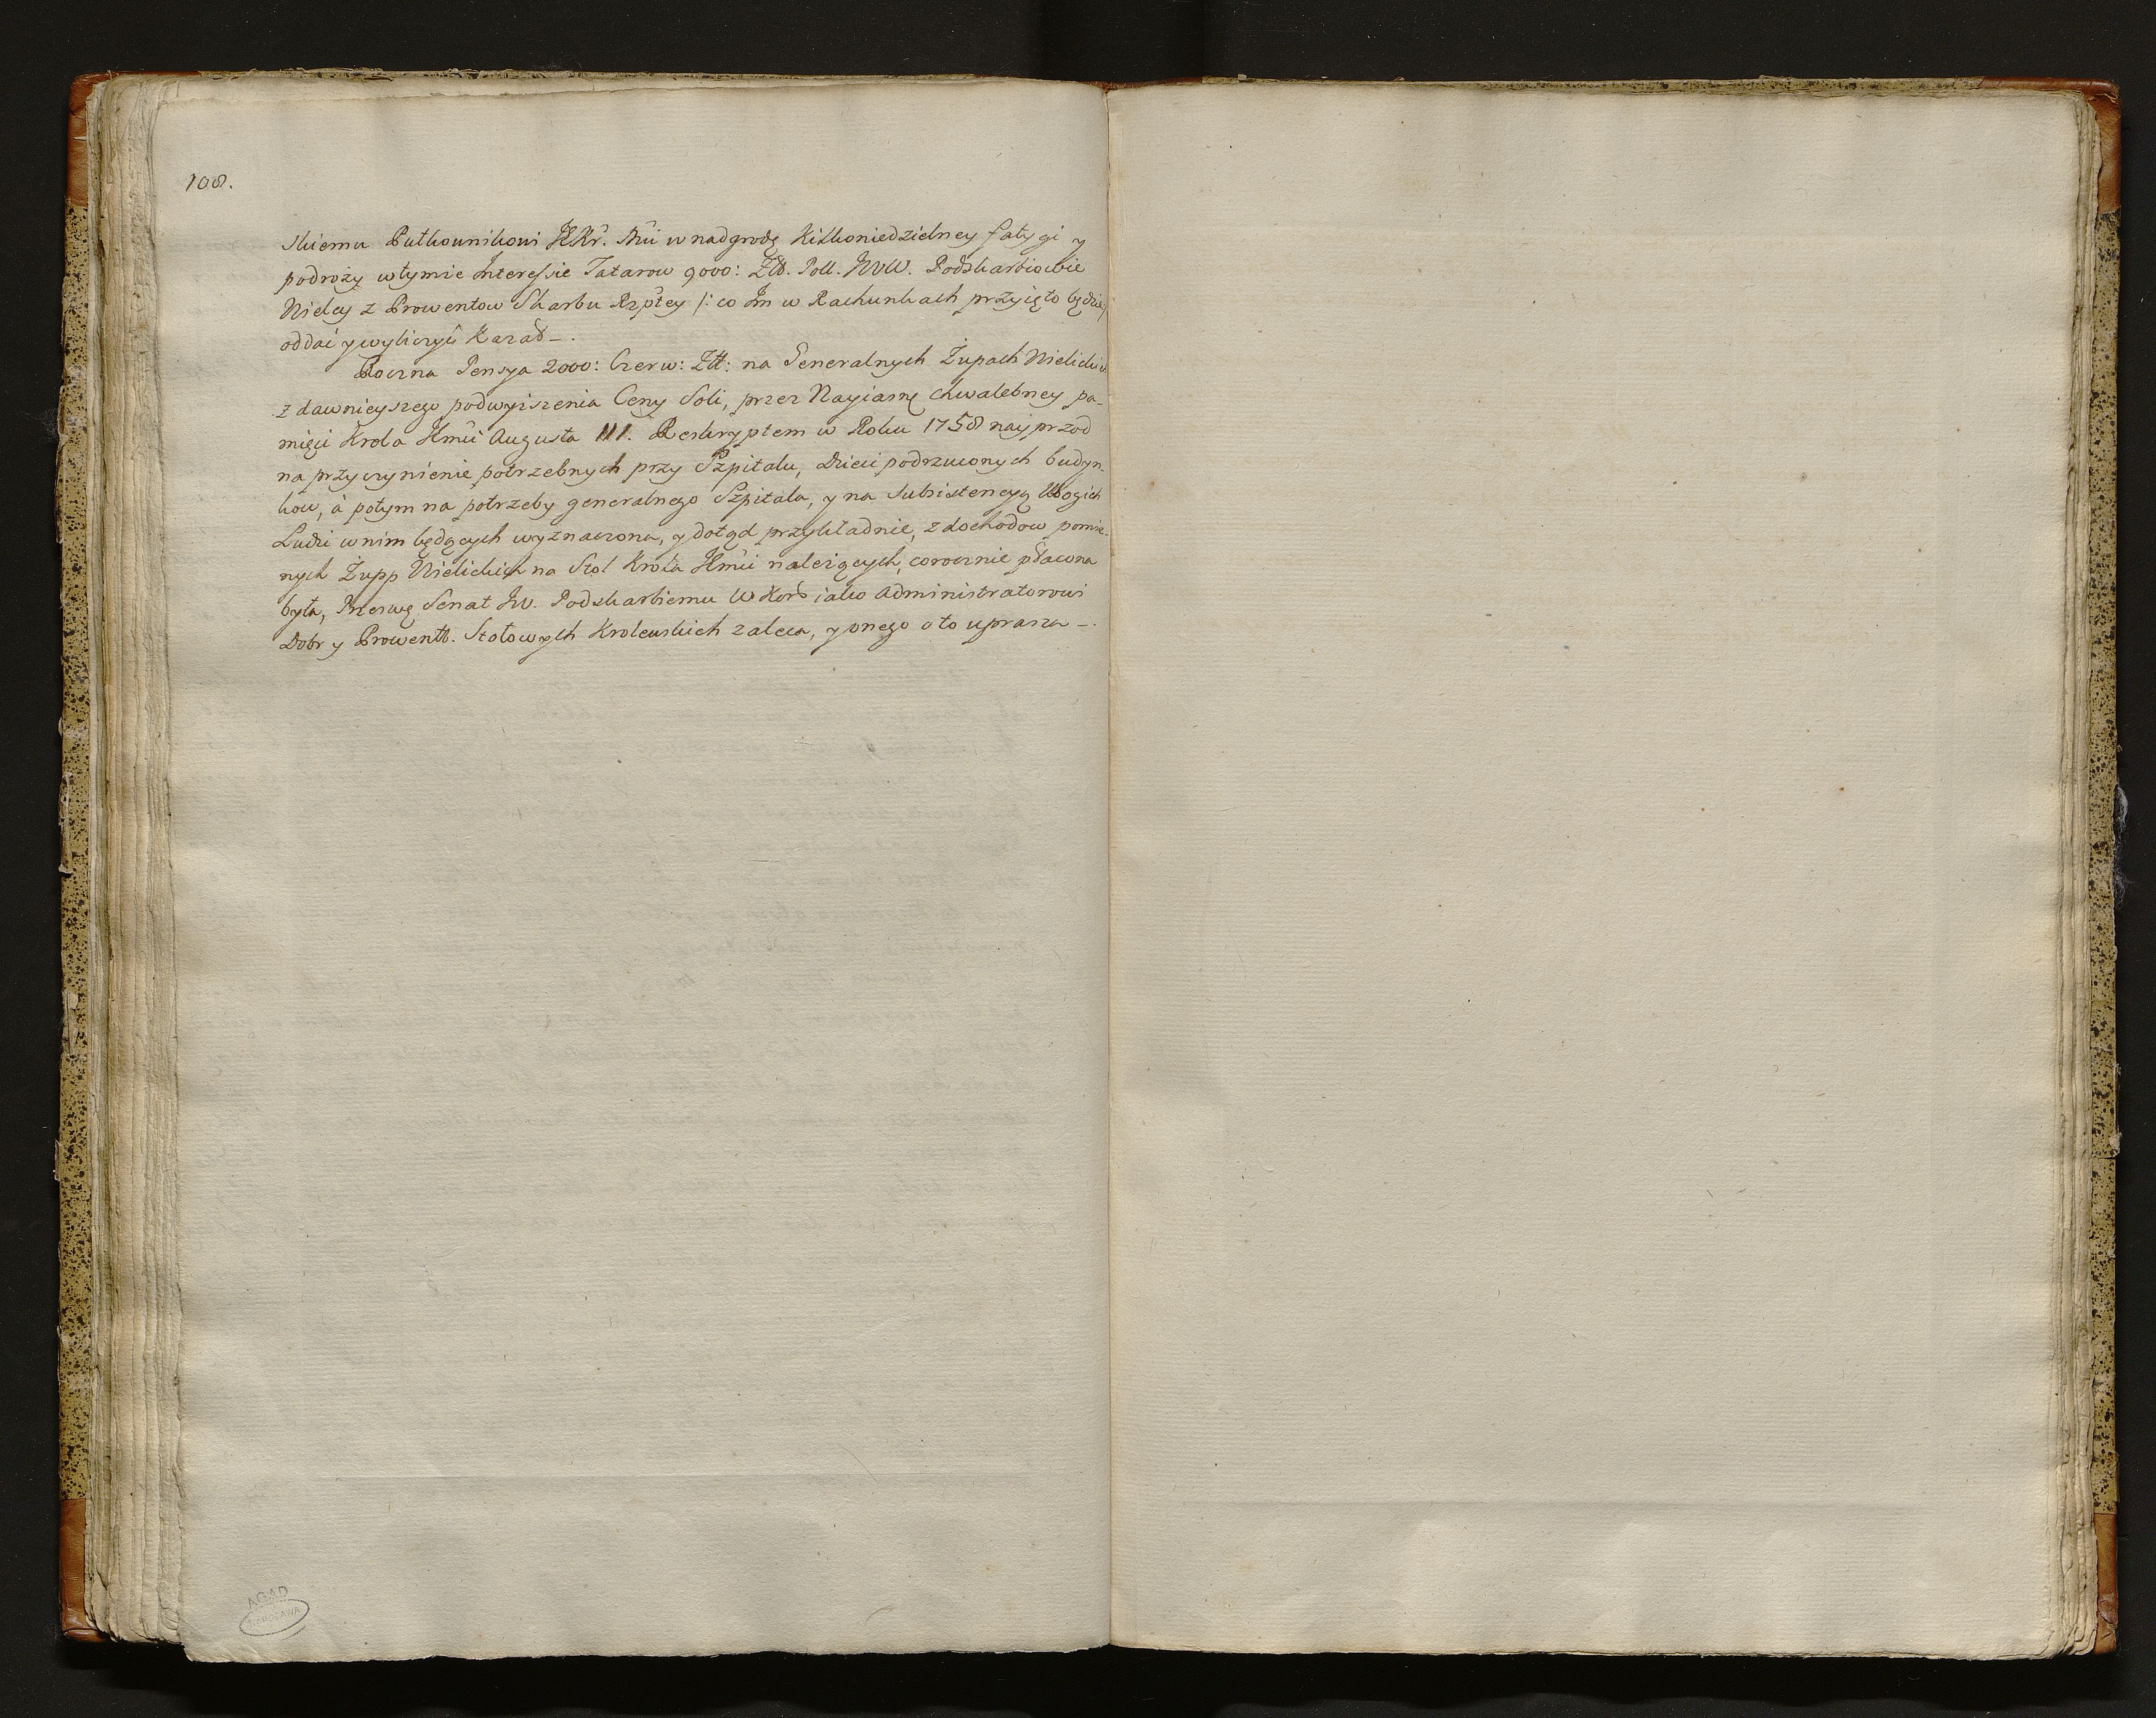 108.
skiemu Pułkownikowi JKr. Mci w nadgrodę kilkoniedzielney fatygi y
podroży w tymie Interessie Tatarow 9000: Złł. Poll. JWW. Podskarbiowie
Wielcy z Prowentow Skarbu Rzptey /: co Im w Rachunkach przyięto będzie :/
oddać y wyliczyć każą –.
Roczna Pensya 2000: Czerw: Złł: na Generalnych Żupach Wielickich
z dawnieyszego podwyiszenia Ceny Soli, przez Nayiasnę chwalebney pa-
mięci Krola Jmci Augusta III. Reskryptem w Roku 1758 nayprzod
na przyczynienie potrzebnych przy Szpitalu, Dzieci podrzuconych budyn-
kow, à potym na potrzeby generalnego Szpitala, y na subsistencyą Ubogich
Ludzi w nim będących wyznaczona, y dotąd przykładnie, z dochodow pomie-
nych Żupp Wielickich na Stoł Krola Jmci należących, corocznie płacona
była, Przeswę Senat JW. Podskarbiemu W Kor iako Administratorowi
Dobr y Prowentt. Stołowych Krolewskich zaleca, y onego o to uprasza –.
AGAD
WARSZAWA